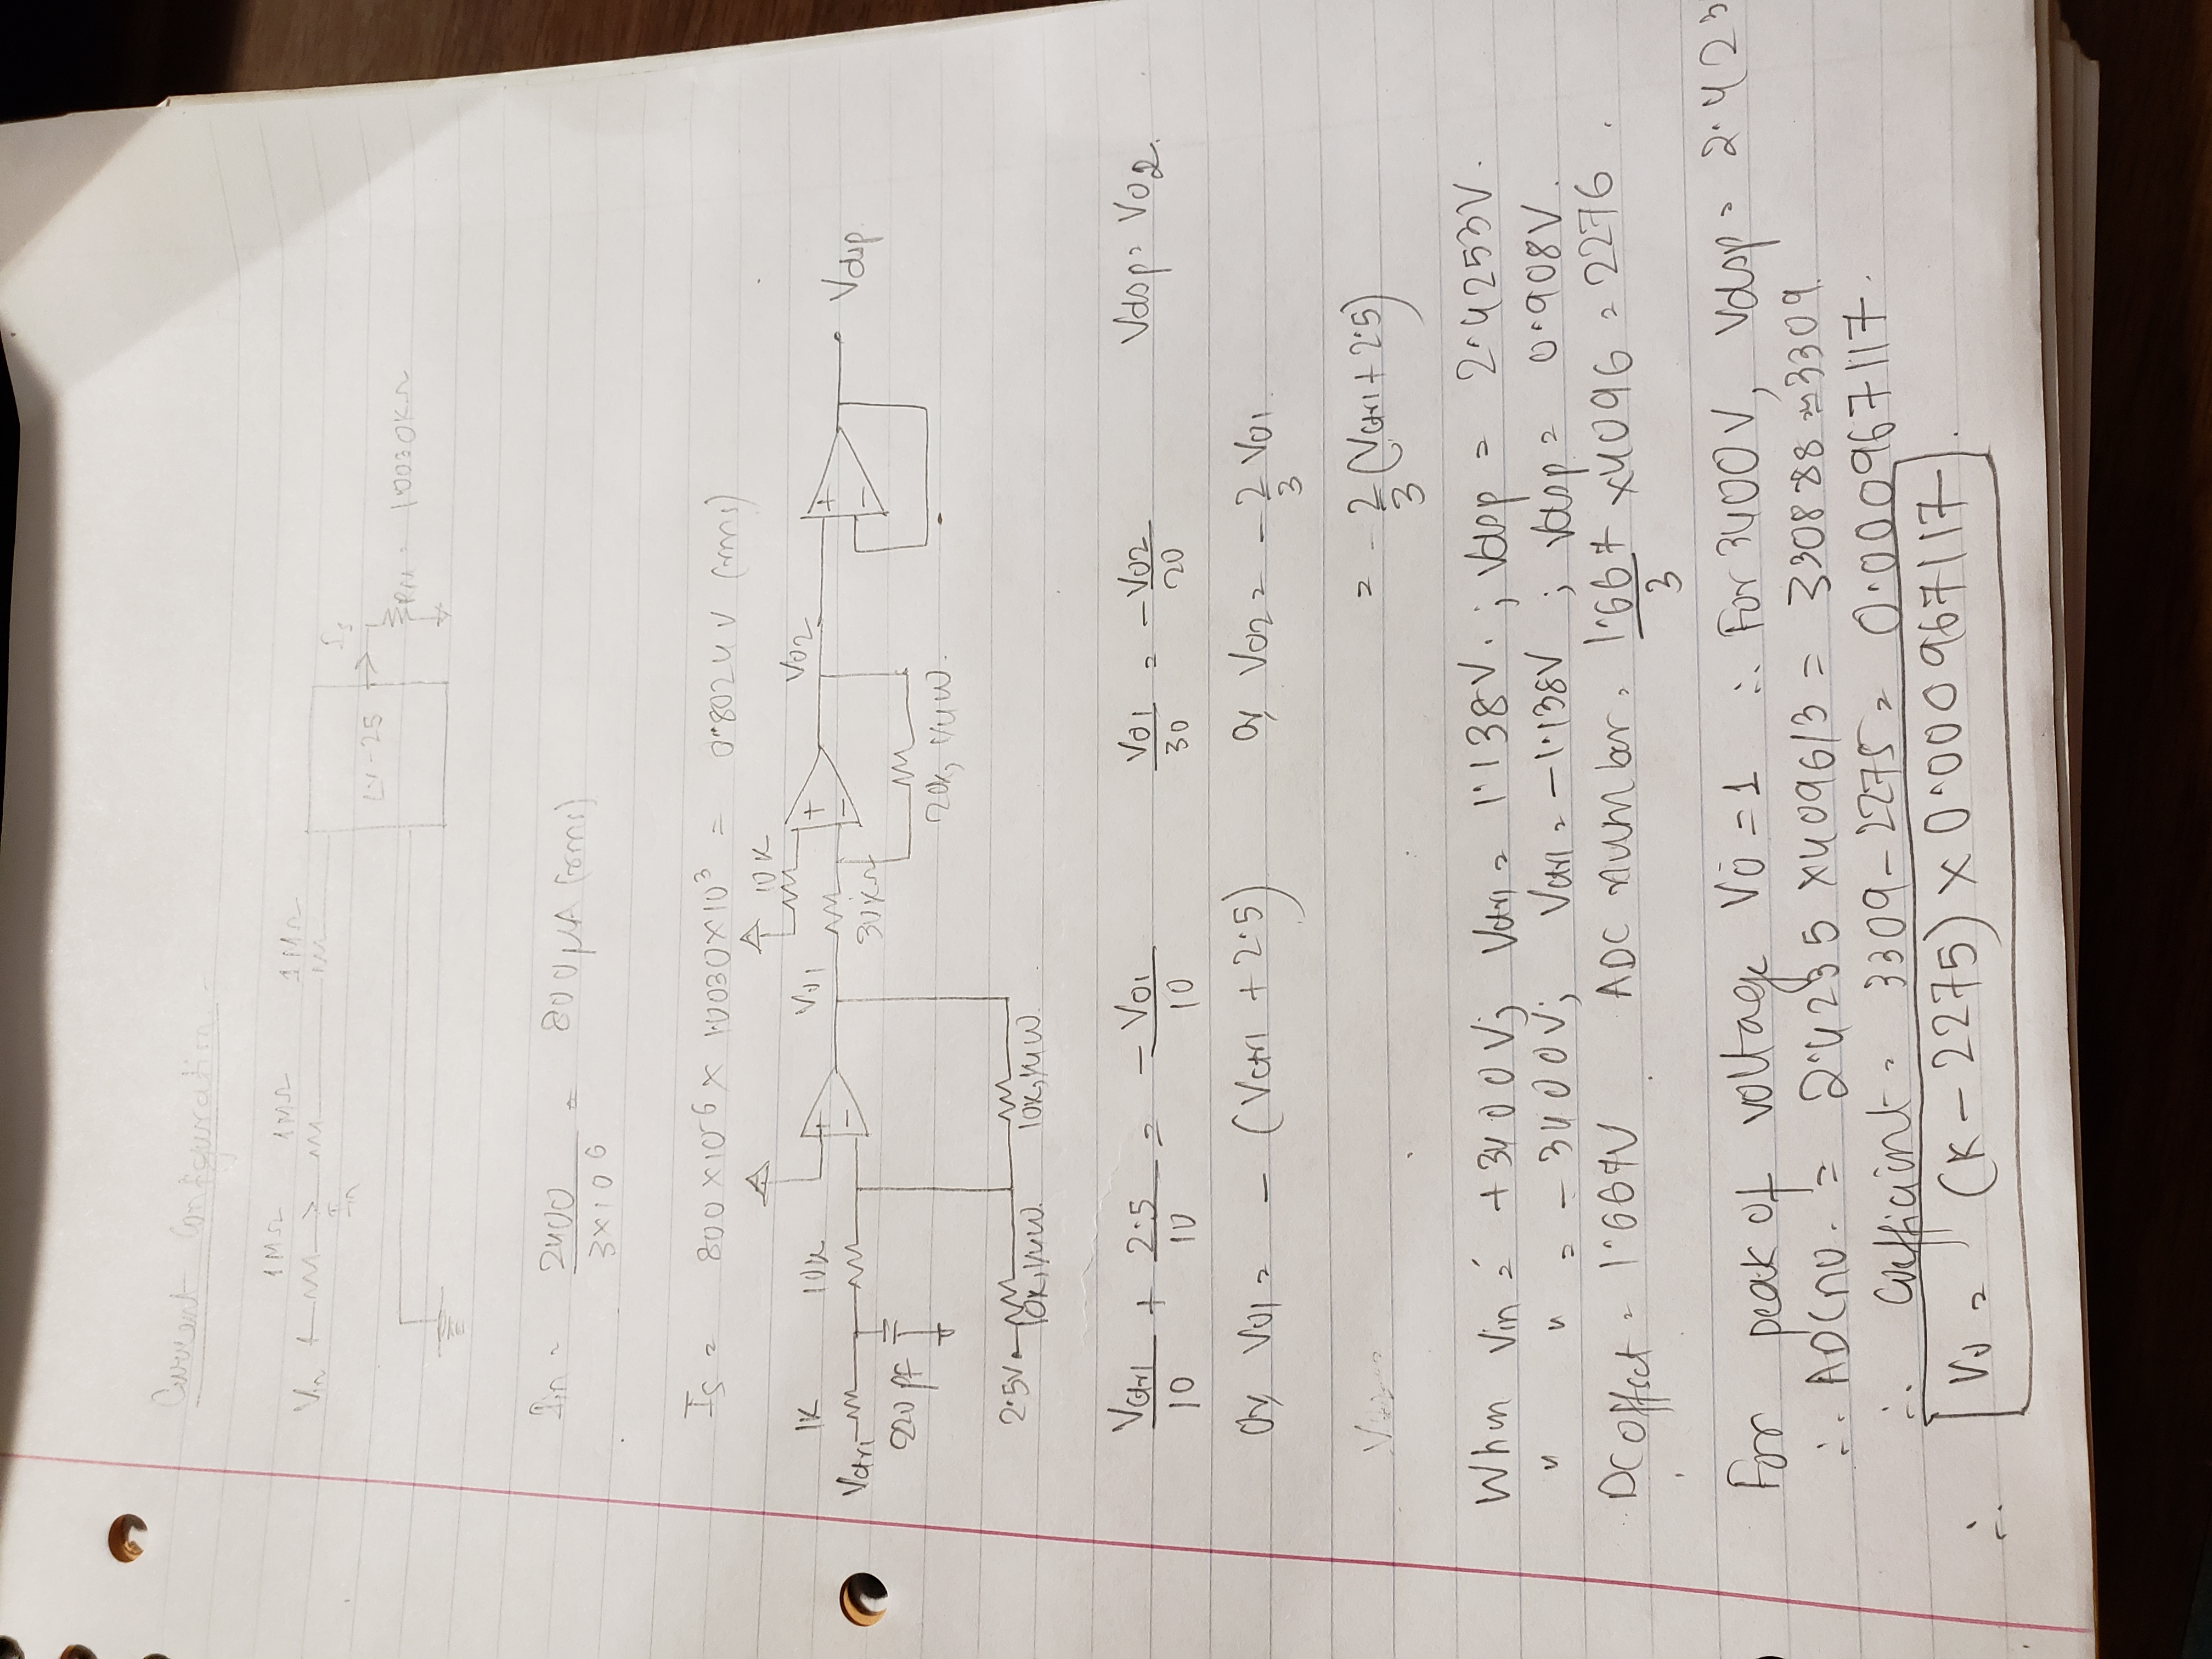 Current Configuration -
1MΩ 1MΩ 1MΩ
Vin
Iin
LV-25
Is
RM = 1.0030KΩ
Iin = 2400 / 3×10^6 = 800μA (rms)
Is = 800×10^-6 × 1.0030×10^3 = 0.8024V (rms)
10K
1K 10K + V01 + V02 +
Vctrl - 30KΩ - - Vdsp
220pF
20k, 1/4W.
2.5V
10K, 1/4W. 10K, 1/4W.
Vctrl/10 + 2.5/10 = -V01/10 V01/30 = -V02/20 Vdsp = V02.
Or, V01 = - (Vctrl + 2.5) Or, V02 = -2/3 V01
= -2/3 (Vctrl + 2.5)
When Vin = +3400V; Vctrl = 1.138V. ; Vdsp = 2.4253V.
" " = -3400V; Vctrl = -1.138V ; Vdsp = 0.908V.
DC offset = 1.667V ADC number = 1.667/3 × 4096 = 2276.
For peak of voltage Vo = 1 ∴ For 3400V, Vdsp = 2.423
∴ ADC no. = 2.4235 × 4096/3 = 3308.88 ≈ 3309.
∴ Coefficient = 3309 - 2275 = 0.000967117.
∴ Vo = (K - 2275) × 0.000967117.